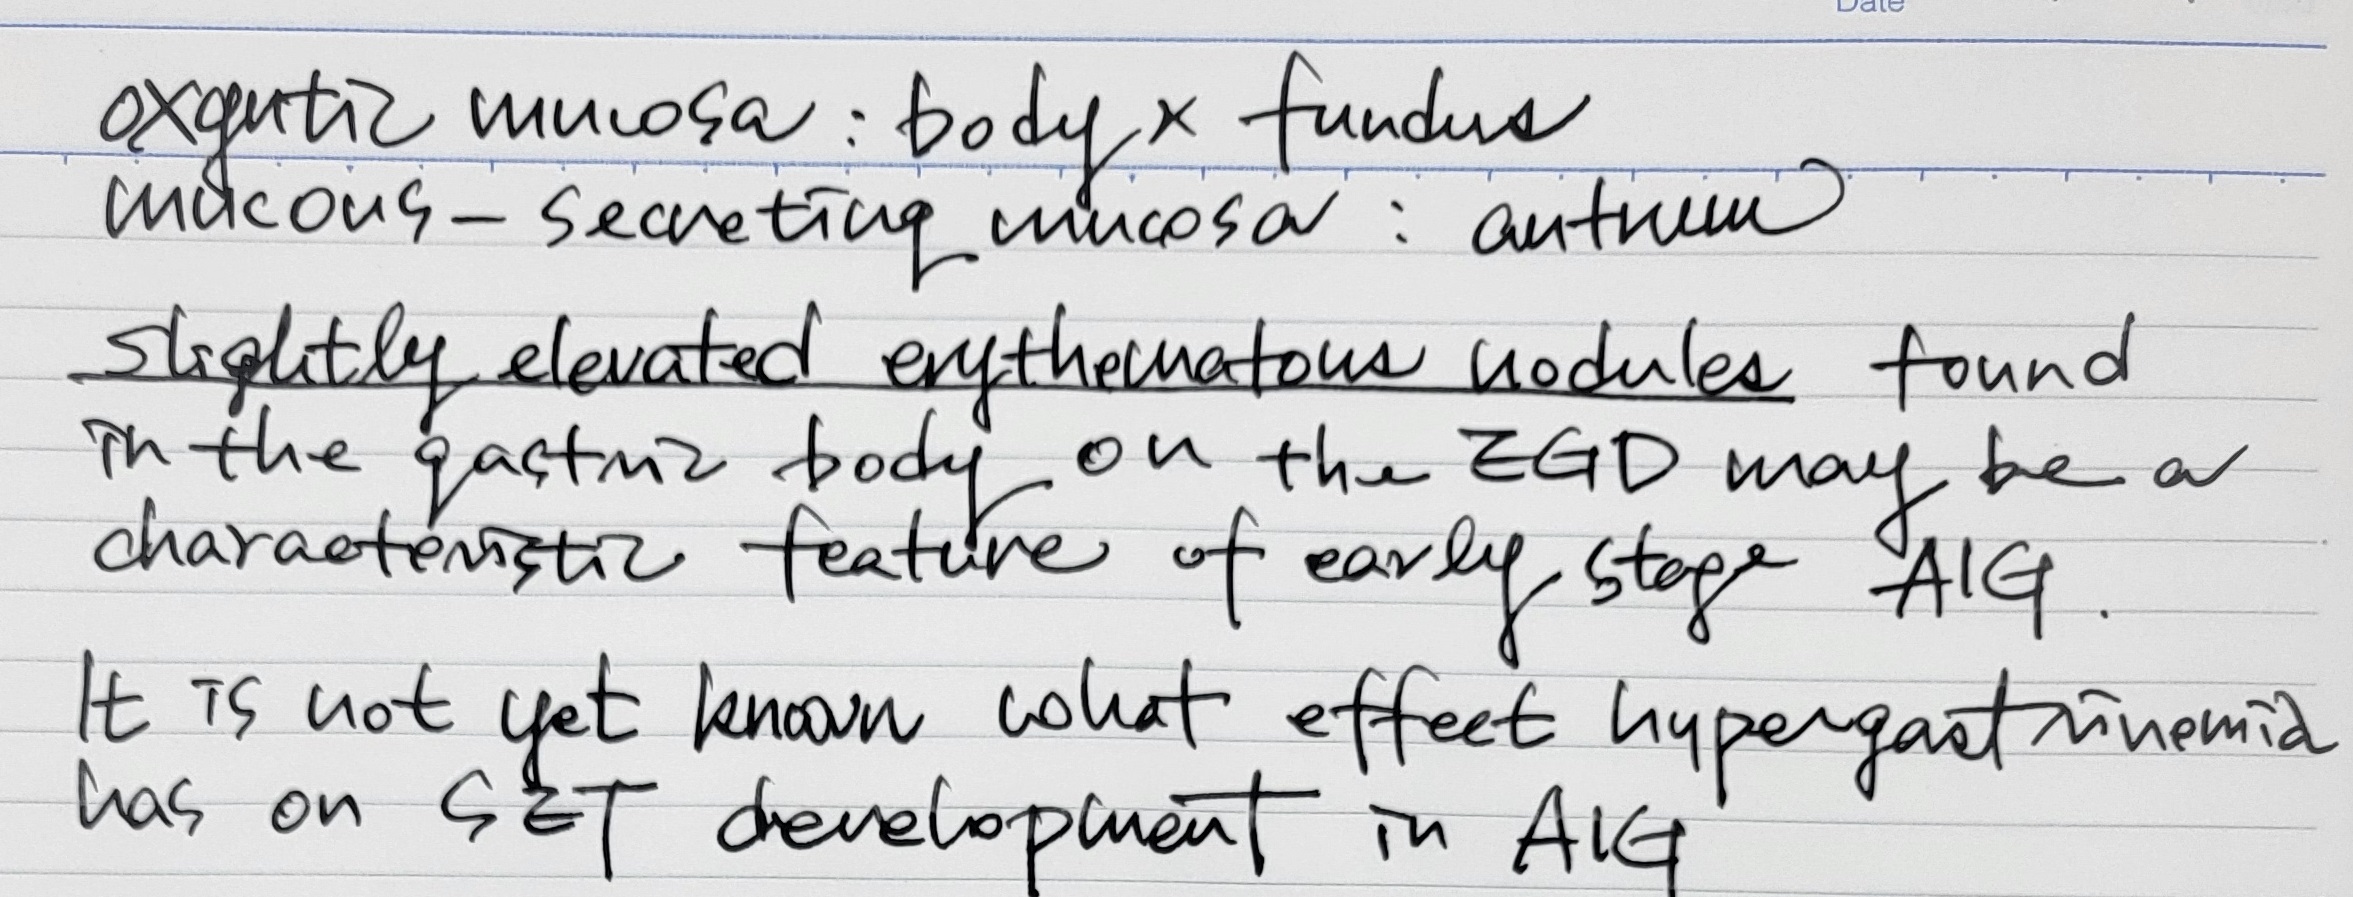 Date
oxyntic mucosa : body x fundus
mucous - secreting mucosa : antrum
slightly elevated erythematous nodules found
in the gastric body on the EGD may be a
characteristic feature of early stage AIG.
It is not yet known what effect hypergastrinemia
has on SET development in AIG